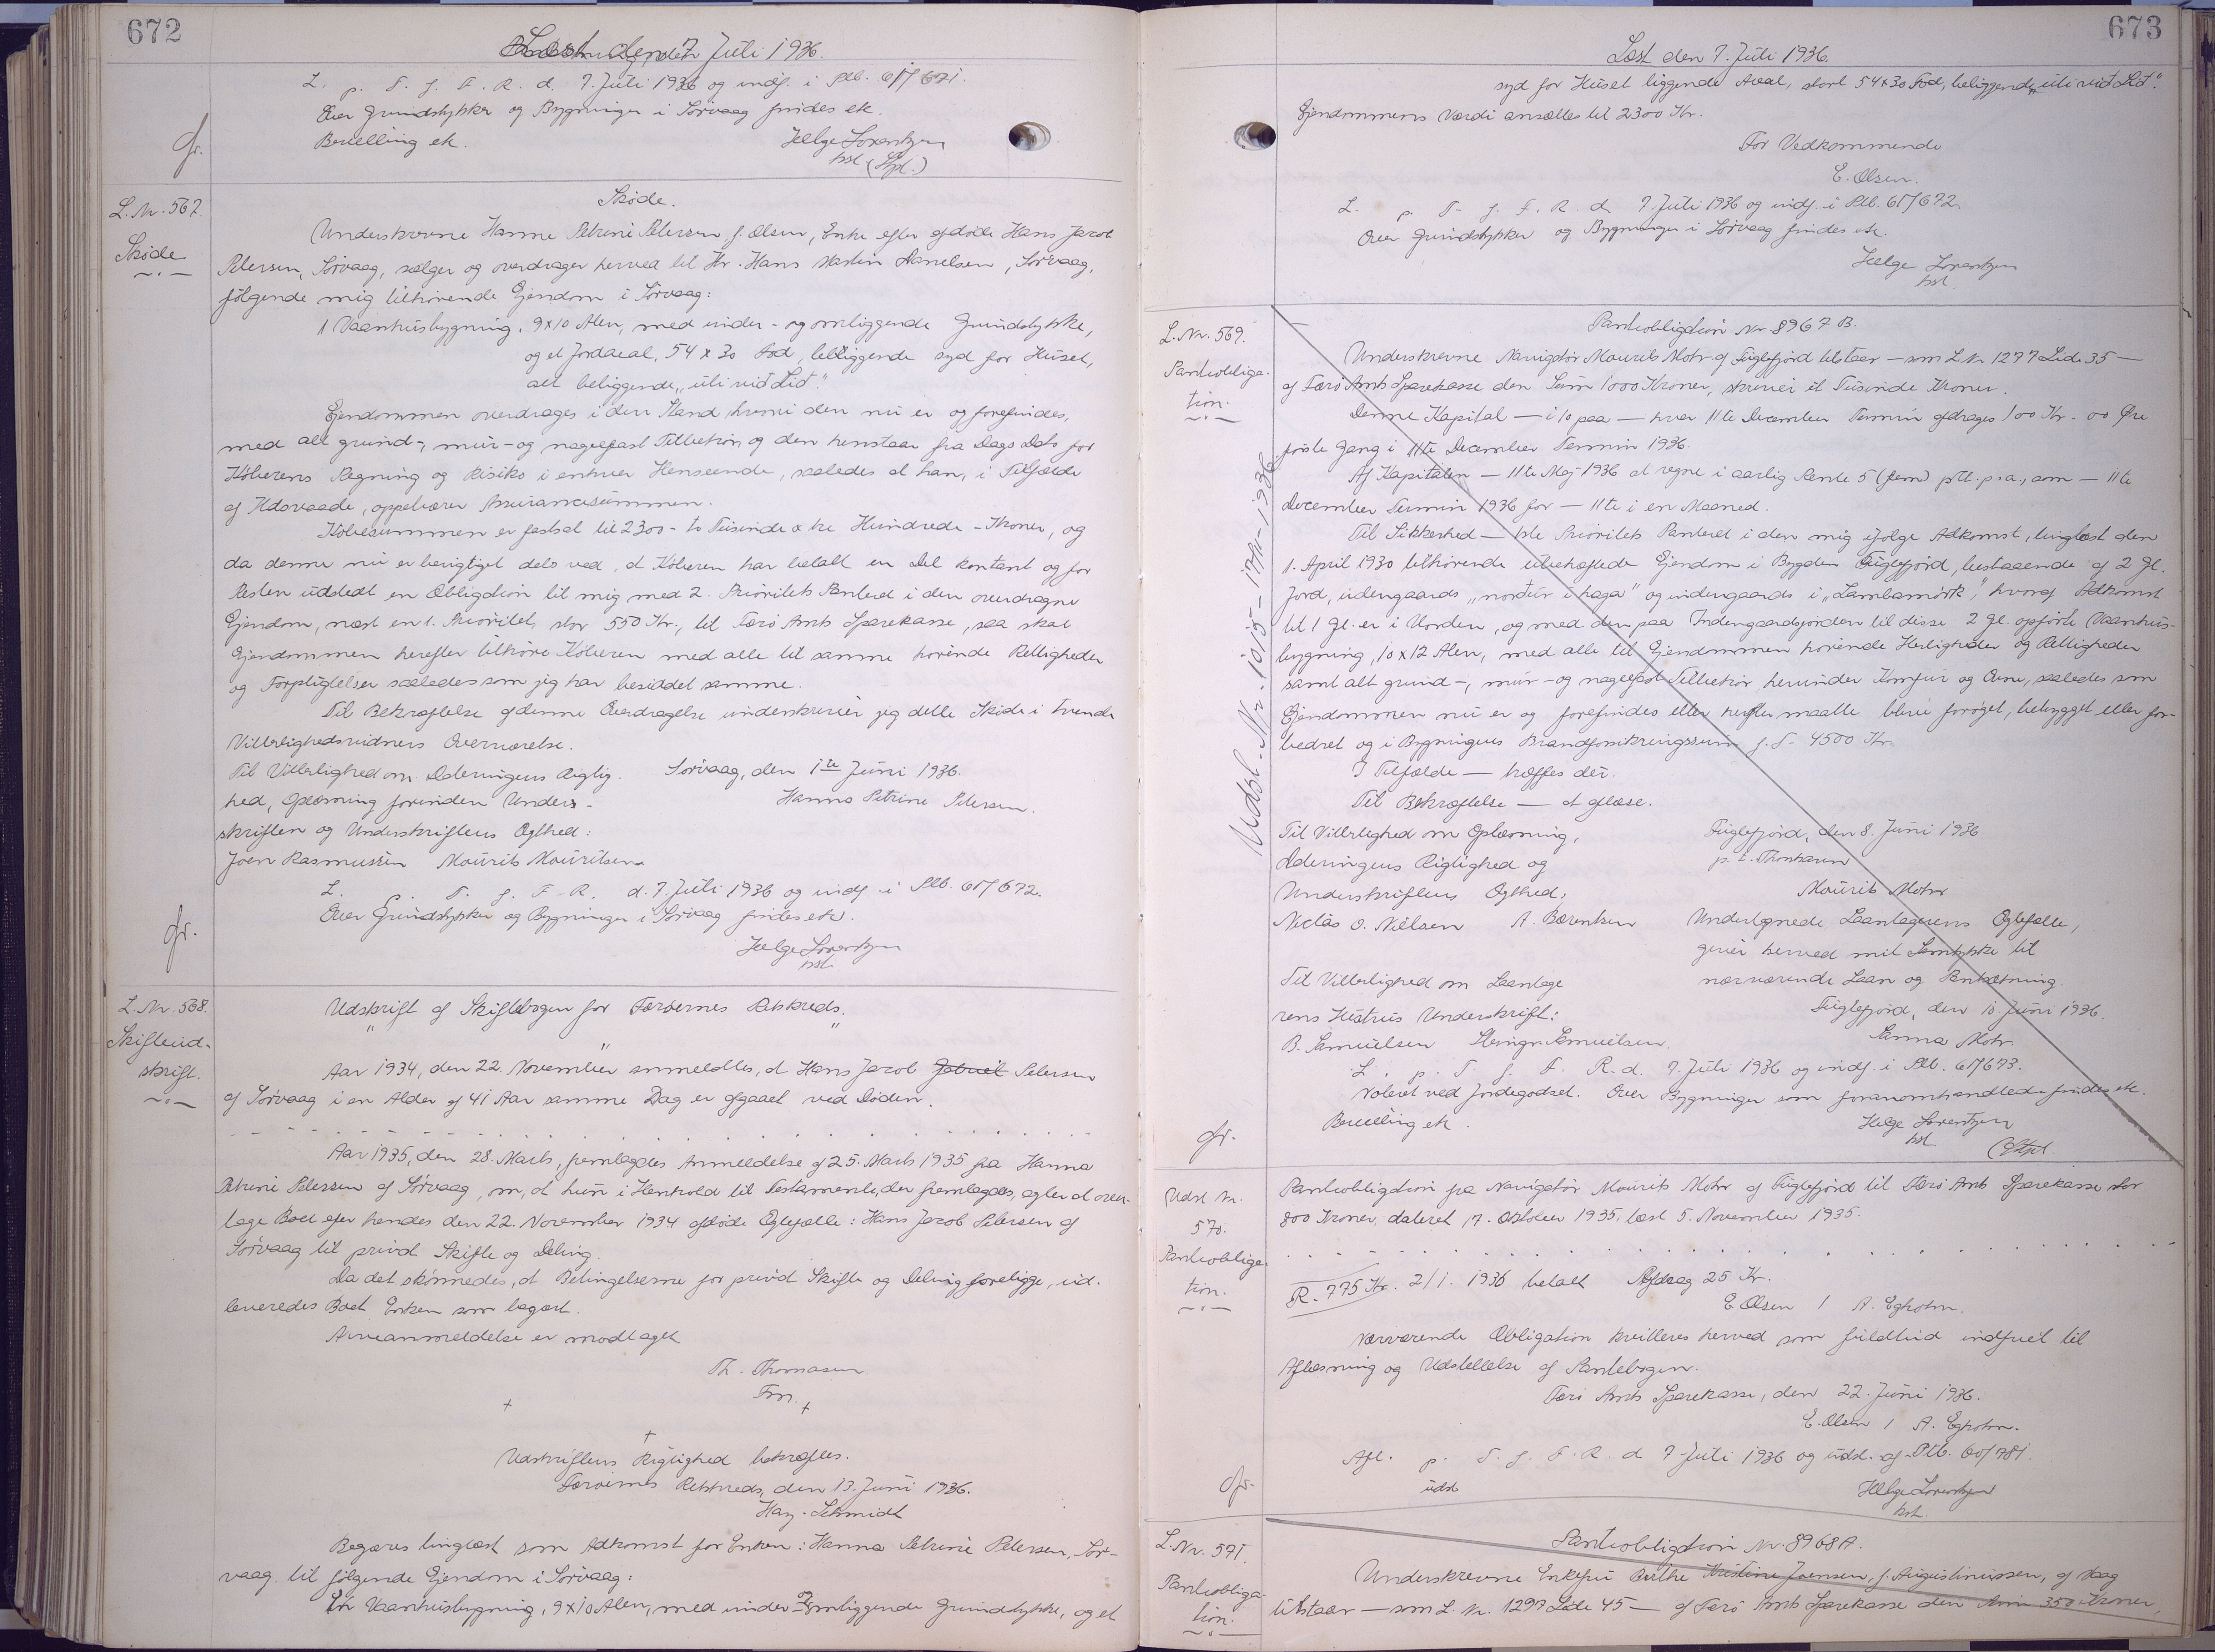 672
Læst den 7 Juli 1936.
L. p. T. f. F. R. d. 7. Juli 1936 og indf. i Ptb. 61/671.
Over Grundstykker og Bygninger i Sörvaag findes etc.
Bevilling etc. Helge Lorentzen
hst. (Stpl.)
fr.
L. Nr. 567.
Skøde
Skøde.
Underskrevne Hanne Petrine Petersen f. Olsen, Enke efter afdøde Hans Jacob
Petersen, Sörvaag, sælger og overdrager herved til Hr. Hans Martin Danielsen, Sörvaag,
følgende mig tilhørende Ejendom i Sörvaag:
1 Vaanhusbygning, 9x10 Alen, med under- og omliggende Grundstykke,
og et Jordareal, 54 x 30 Fod, beliggende syd for Huset,
alt beliggende „uti við Lið".
Ejendommen overdrages i den Stand hvori den nu er og forefindes,
med alt grund-, mur- og nagelfast Tilbehør, og den henstaar fra Dags Dato for
Köberens Regning og Risiko i enhver Henseende, saaledes at han, i Tilfælde
af Ildsvaade, oppebærer Assurancesummen.
Købesummen er fastsat til 2300 - to Tusinde o tre Hundrede - Kroner, og
da denne nu er berigtiget dels ved, at Køberen har betalt en Del kontant og for
Resten udstedt en Obligation til mig med 2. Prioritets Panteret i den overdragne
Ejendom, næst en 1. Prioritet, stor 550 Kr., til Færø Amts Sparekasse, saa skal
Ejendommen herefter tilhøre Köberen med alle til samme hørende Rettigheder
og Forpligtelser saaledes som jeg har besiddet samme.
Til Bekræftelse af denne Overdragelse underskriver jeg dette Skøde i tvende
Vitterlighedsvidners Overværelse.
Til Vitterlighed om Dateringens Rigtig- Sörvaag, den 1ste Juni 1936.
hed, Oplæsning forinden Under- Hanna Petrine Petersen.
skriften og Underskriftens Ægthed:
Joen Rasmussen Mourits Mouritsen
L. p. T. f. F. R. d. 7. Juli 1936 og indf. i Ptb. 61/672.
Over Grundstykker og Bygninger i Sörvaag findes etc.
Helge Lorentzen
hst.
fr.
L. Nr. 568.
Skifteud-
skrift.
Udskrift af Skiftebogen for Færøernes Retskreds.
Aar 1934, den 22. November anmeldtes, at Hans Jacob Gabriel Petersen
af Sörvaag i en Alder af 41 Aar samme Dag er afgaaet ved Døden.
Aar 1935, den 28. Marts, fremlagdes Anmeldelse af 25. Marts 1935 fra Hanna
Petrine Petersen af Sörvaag, om, at hun i Henhold til Testamente, der fremlagdes, agter at over-
tage Boet efter hendes den 22. November 1934 afdøde Ægtefælle: Hans Jacob Petersen af
Sörvaag til privat Skifte og Deling.
Da det skønnedes, at Betingelserne for privat Skifte og Deling foreligge, ud-
leveredes Boet Enken som begært.
Arveanmeldelse er modtaget
Th. Thomasen
Fm.
Udskriftens Rigtighed bekræftes.
Færøernes Retskreds, den 13. Juni 1936.
Hay-Schmidt
Begæres tinglæst som Adkomst for Enken: Hanna Petrine Petersen, Sör-
vaag til følgende Ejendom i Sörvaag:
En Vaanhusbygning, 9x10 Alen, med under- og omliggende Grundstykke, og et
673
Læst den 7. Juli 1936.
syd for Huset liggende Areal, stort 54x30 Fod, beliggende „uti við Lið".
Ejendommens Værdi ansættes til 2300 Kr.
For Vedkommende
E. Olsen.
L. p. T. f. F. R. d. 7. Juli 1936 og indf. i Ptb. 61/672.
Over Grundstykker og Bygninger i Sörvaag findes etc.
Helge Lorentzen
hst.
L. Nr. 569.
Pantobliga-
tion.
Pantobligation Nr. 8967 B.
Underskrevne Navigatör Mourits Mohr af Fuglefjord tilstaar — som L. Nr. 1277 Lide 35 —
af Færø Amts Sparekasse den Sum 1000 Kroner, skriver et Tusinde Kroner.
Denne Kapital — i 10 paa — hver 11te December Termin afdrages 100 Kr. 00 Øre
første Gang i 11te December Termin 1936.
Af Kapitalen — 11te Maj 1936 at regne i aarlig Rente 5 (fem) pCt. p. a., som — 11te
December Termin 1936 for — 11te i en Maaned.
Til Sikkerhed — 1ste Prioritets Panteret i den mig ifølge Adkomst, tinglæst den
1. April 1930 tilhørende ubehæftede Ejendom i Bygden Fuglefjord, bestaaende af 2 Gl.
Jord, udengaards „norður i haga" og indengaards i „Lambamörk", hvoraf Adkomst
til 1 Gl. er i Orden, og med den paa Indengaardsjorden til disse 2 Gl. opførte Vaanhus-
bygning, 10 x 12 Alen, med alle til Ejendommen hørende Herligheder og Rettigheder
samt alt grund-, mur- og nagelfast Tilbehør herunder Komfur og Ovne, saaledes som
Ejendommen nu er og forefindes eller herefter maatte blive forøget, bebygget eller for-
bedret og i Bygningens Brandforsikringssum f. T. 4500 Kr.
I Tilfælde — træffes der.
Til Bekræftelse — at aflæse.
Til Vitterlighed om Oplæsning, Fuglefjord, den 8. Juni 1936
Dateringens Rigtighed og p. t. Thorshavn
Underskriftens Ægthed: Mourits Mohr
Niclas O. Nielsen A. Bærentsen Undertegnede Laantagerens Ægtefælle,
giver herved mit Samtykke til
Til Vitterlighed om Laantage- nærværende Laan og Pantsætning.
rens Hustrus Underskrift: Fuglefjord, den 10. Juni 1936.
B. Samuelsen Samuelsen. Sanna Mohr.
L. p. T. f. F. R. d. 7. Juli 1936 og indf. i Ptb. 61/673.
Noteret ved Jordegodset. Over Bygninger som foranomhandlede findes etc.
Bevilling etc. Helge Lorentzen
hst. (Stpl.
fr.
Udsl. Nr. 1015 - 17/11-1936.
Udsl. Nr.
570.
Pantobliga-
tion.
Pantobligation fra Navigatör Mourits Mohr af Fuglefjord til Færø Amts Sparekasse stor
800 Kroner, dateret 17. Oktober 1935, læst 5. November 1935.
R. 775 Kr. 2/1. 1936 betalt Afdrag 25 Kr.
E. Olsen / A. Egholm.
Nærværende Obligation kvitteres herved som fuldtud indfriet til
Aflæsning og Udslettelse af Pantebogen.
Færø Amts Sparekasse, den 22. Juni 1936.
E. Olsen / A. Egholm.
Afl. p. T. f. F. R. d. 7. Juli 1936 og udsl. af Ptb. 60/781.
udsl. Helge Lorentzen
hst.
fr.
L. Nr. 571.
Pantobliga-
tion.
Pantobligation Nr. 8968 A.
Underskrevne Enkefru Birthe Kristine Joensen, f. Augustinussen, af Vaag
tilstaar — som L. Nr. 1297 Lide 45 — af Færø Amts Sparekasse den Sum 350 Kroner,